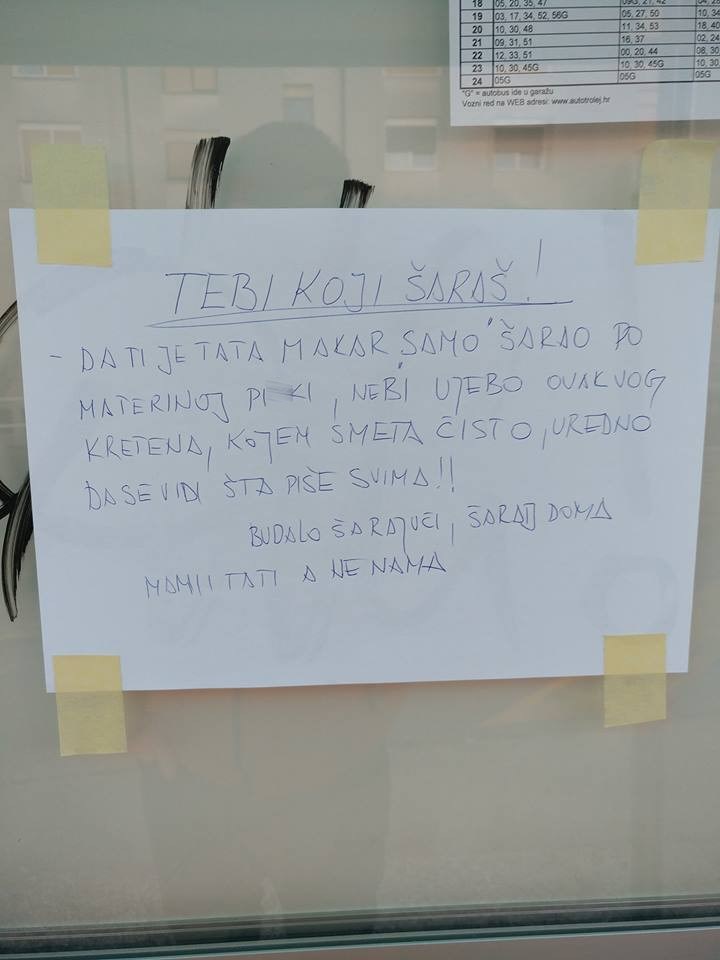 18 05, 20, 35, 47
19 03, 17, 34, 52, 56G 05, 27, 50 10, 34
20 10, 30, 48 11, 34, 53 18, 40
21 09, 31, 51 16, 37 02, 24
22 12, 33, 51 00, 20, 44 08, 30
23 10, 30, 45G 10, 30, 45G 10, 30,
24 05G 05G 05G
"G" = autobus ide u garažu
Vozni red na WEB adresi: www.autotrolej.hr
TEBI KOJI ŠARAŠ!
- DA TI JE TATA MAKAR SAMO ŠARAO PO
MATERINOJ PI KI, NEBI UJEBO OVAKVOG
KRETENA, KOJEM SMETA ČISTO, UREDNO
DA SE VIDI ŠTA PIŠE SVIMA!!
BUDALO ŠARAJUČI, ŠARAJ DOMA
MAMI I TATI A NE NAMA